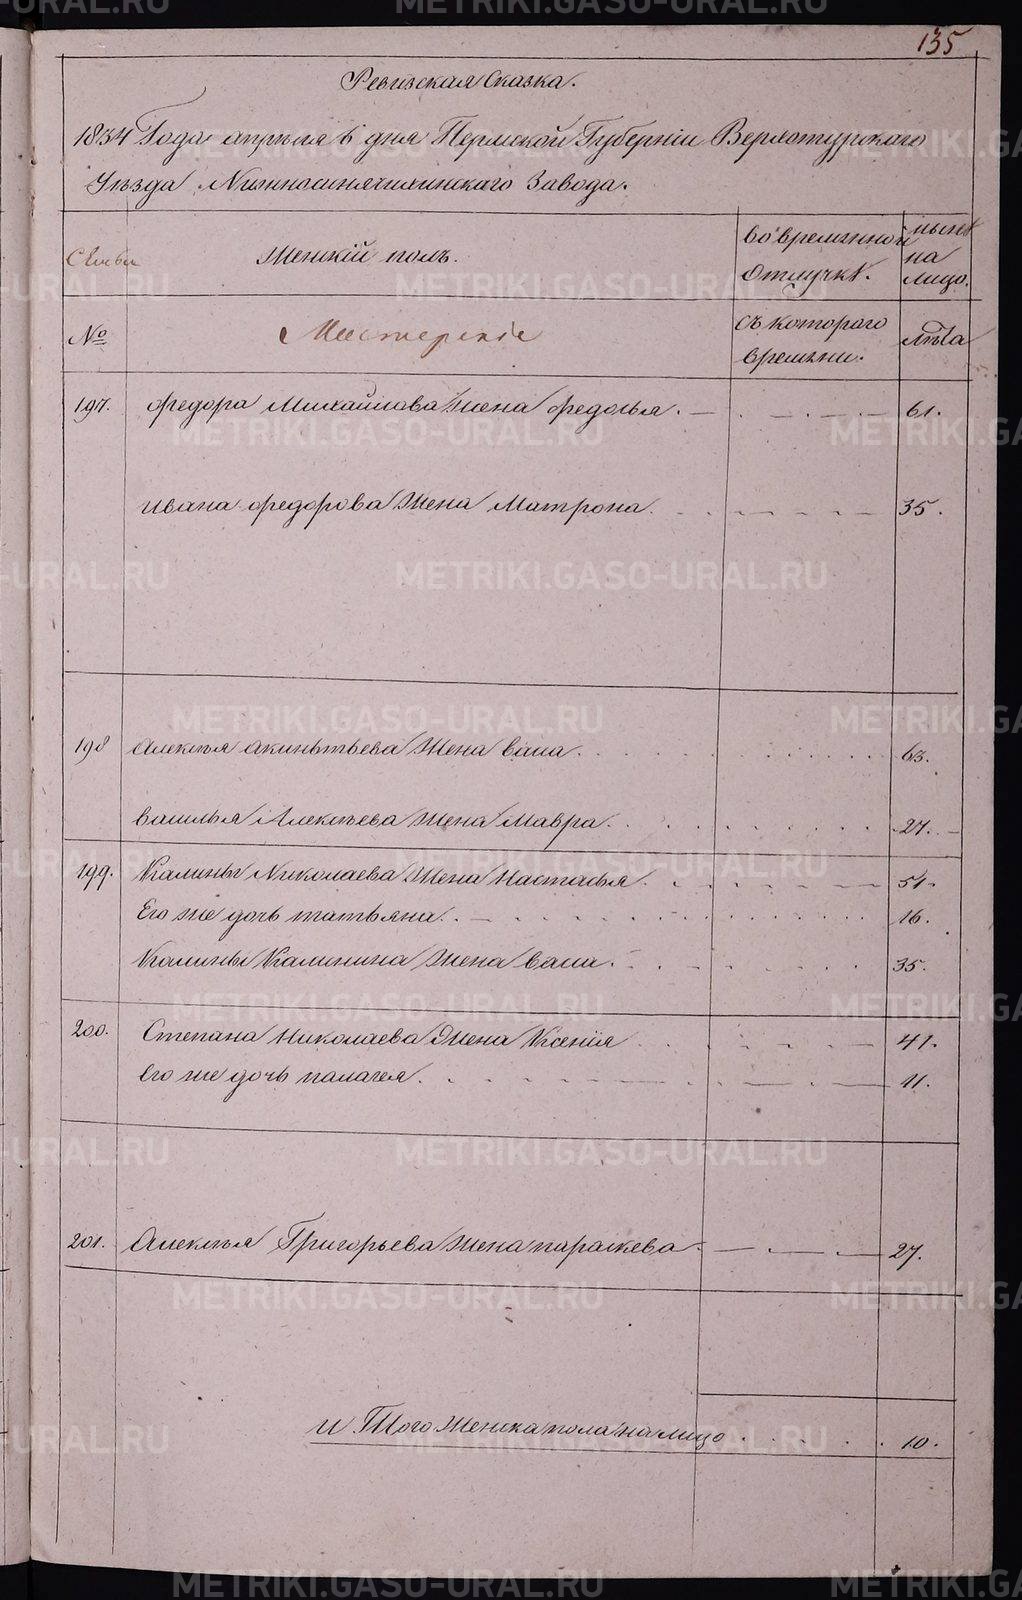 135
Ревизская Сказка.
1834 Года апреля 6 дня Пермской Губернiи Верхотурскаго
Уѣзда Нижносинячихинскаго Завода.
Семьи
Женскiй полъ.
во временной отлучкѣ.
ныне на лицо.
№
Мастерскiе
съ котораго времени.
лѣта
197. Федора Михайлова жена Федосья. 61.
Ивана Федорова жена Матрона. 35.
198 Алексѣя Акинтьева жена васа. 63.
василья Алексѣева жена Мавра. 27.
199. Калины Николаева жена Настасья. 51.
Его же дочь татьяна. 16.
Калины Калинина жена васа. 35.
200. Степана Николаева жена Ксенiя 41.
Его же дочь палагея. 11.
201. Алексѣя Григорьева жена параскева. 27.
и Того женска пола на лицо 10.
METRIKI.GASO-URAL.RU